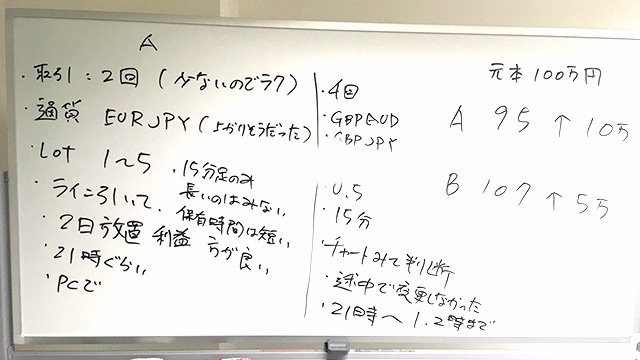 A
・取引：2回（少ないのでラク）
・通貨 EURJPY（上がりそうだった）
・Lot 1〜5
・ライン引いて
・2日放置 利益
・21時ぐらい
・PCで
・15分足のみ
長いのはみない
・保有時間は短い
方が良い
・4回
・GBPAUD
・GBPJPY
・0.5
・15分
・チャートみて判断
・途中で変更しなかった
・21時〜1.2時まで
元本100万円
A 95 ↑ 10万
B 107 ↑ 5万